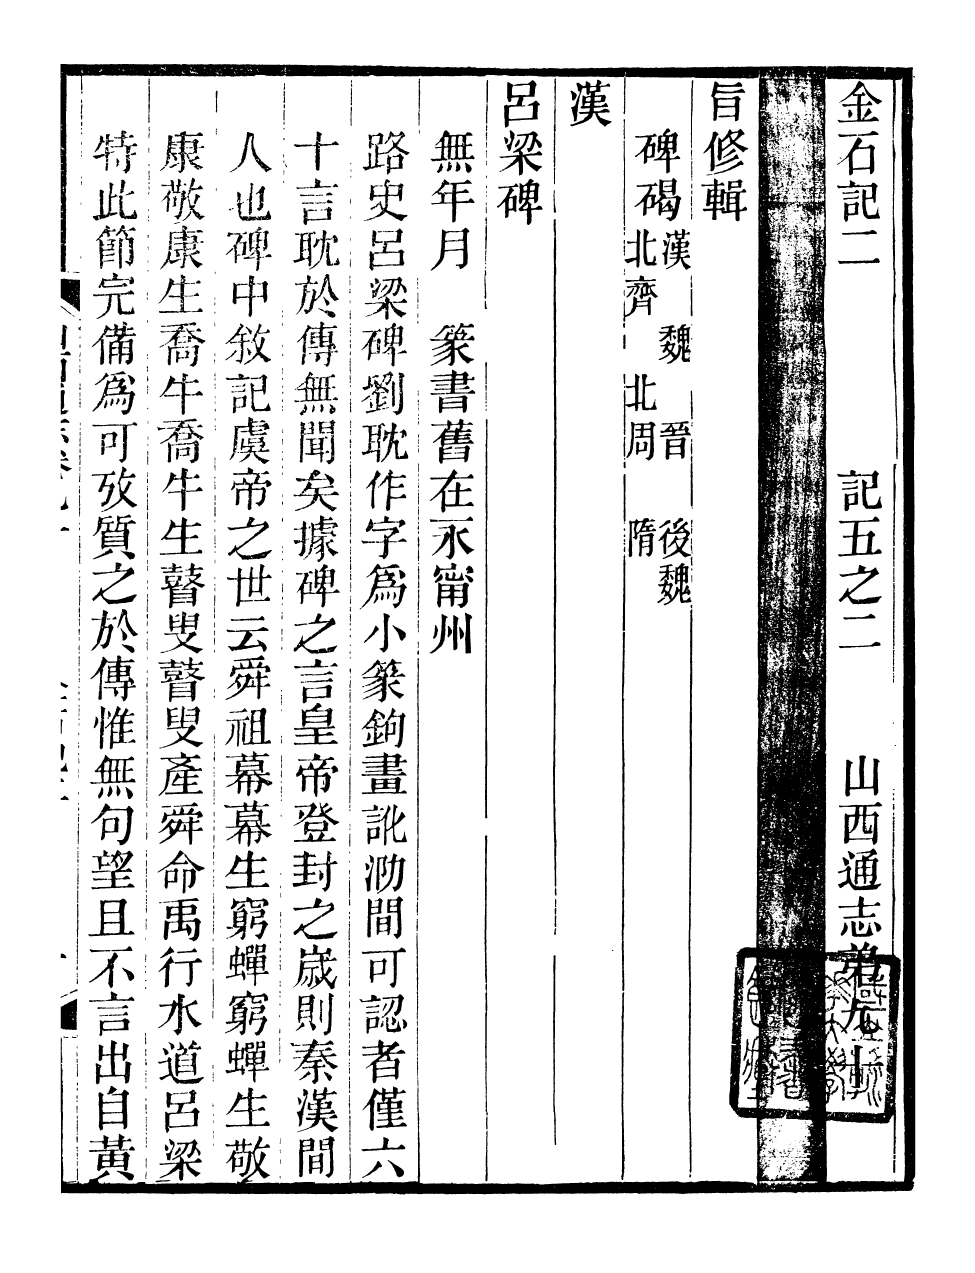 金石記二　記五之二　山西通志弟九十
旨修輯
碑碣漢　魏　晉　後魏　北齊　北周　隋
漢
呂梁碑
無年月　篆書舊在永甯州
路史呂梁碑劉耽作字爲小篆鉤畫訛泐間可認者僅六
十言耽於傳無聞矣據碑之言皇帝登封之歲則秦漢間
人也碑中敘記虞帝之世云舜祖幕幕生窮蟬窮蟬生敬
康敬康生喬牛喬牛生瞽叟瞽叟產舜命禹行水道呂梁
特此節完備爲可攷質之於傳惟無句望且不言出自黃